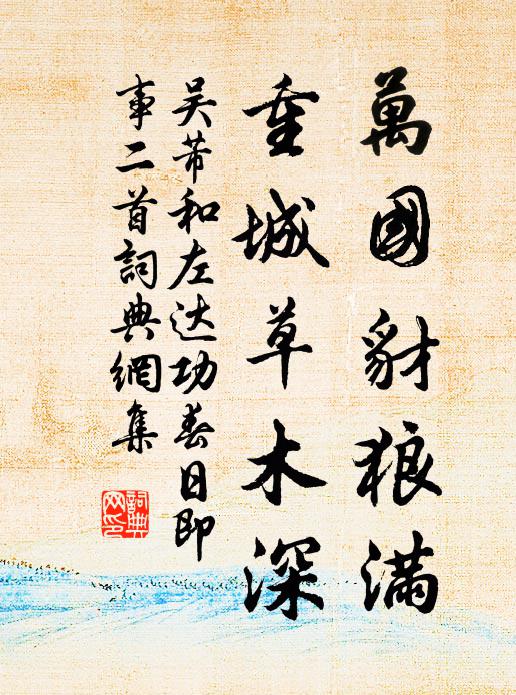 萬國豺狼滿
重城草木深
吴芾和左达功春日即
事二首詞典網集
詞典
网印